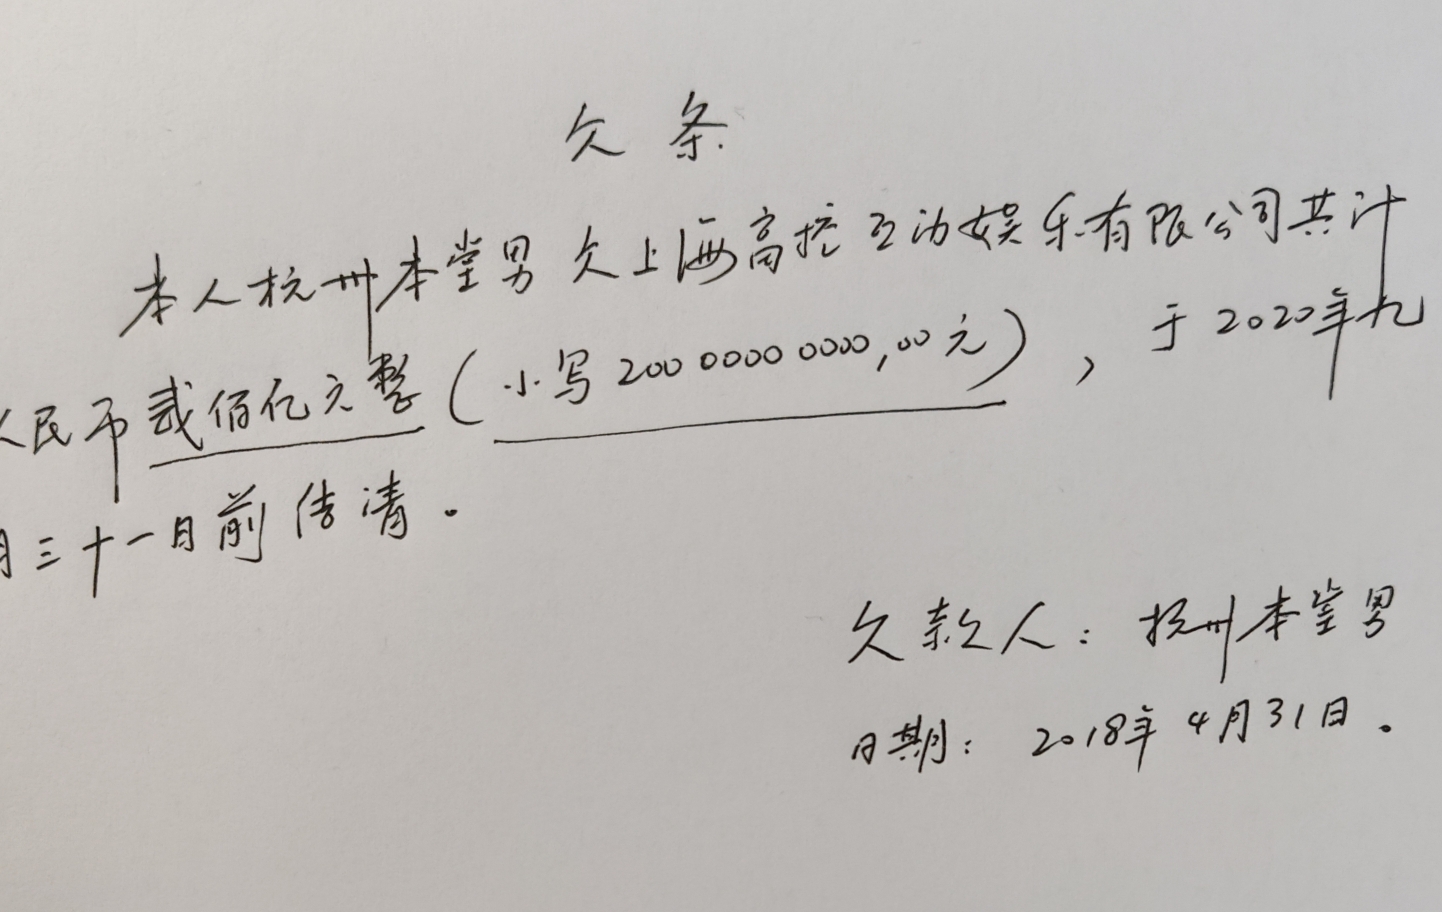 欠条
本人杭州本堂男欠上海高控互动娱乐有限公司共计
人民币贰佰亿元整(小写200 0000 0000,00元),于2020年九
月三十一日前结清。
欠款人:杭州本堂男
日期:2018年4月31日.